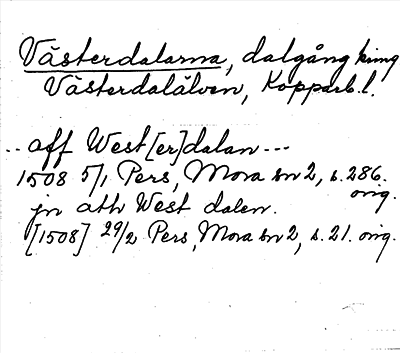 Västerdalarna, dalgång kring
Västerdalälven, Kopparb.l.
.. aff West[er]dalan ---
1508 5/1 Pers, Mora sn 2, s. 286.
orig.
jn ath West dalen.
[1508] 29/2 Pers, Mora sn 2, s. 21. orig.